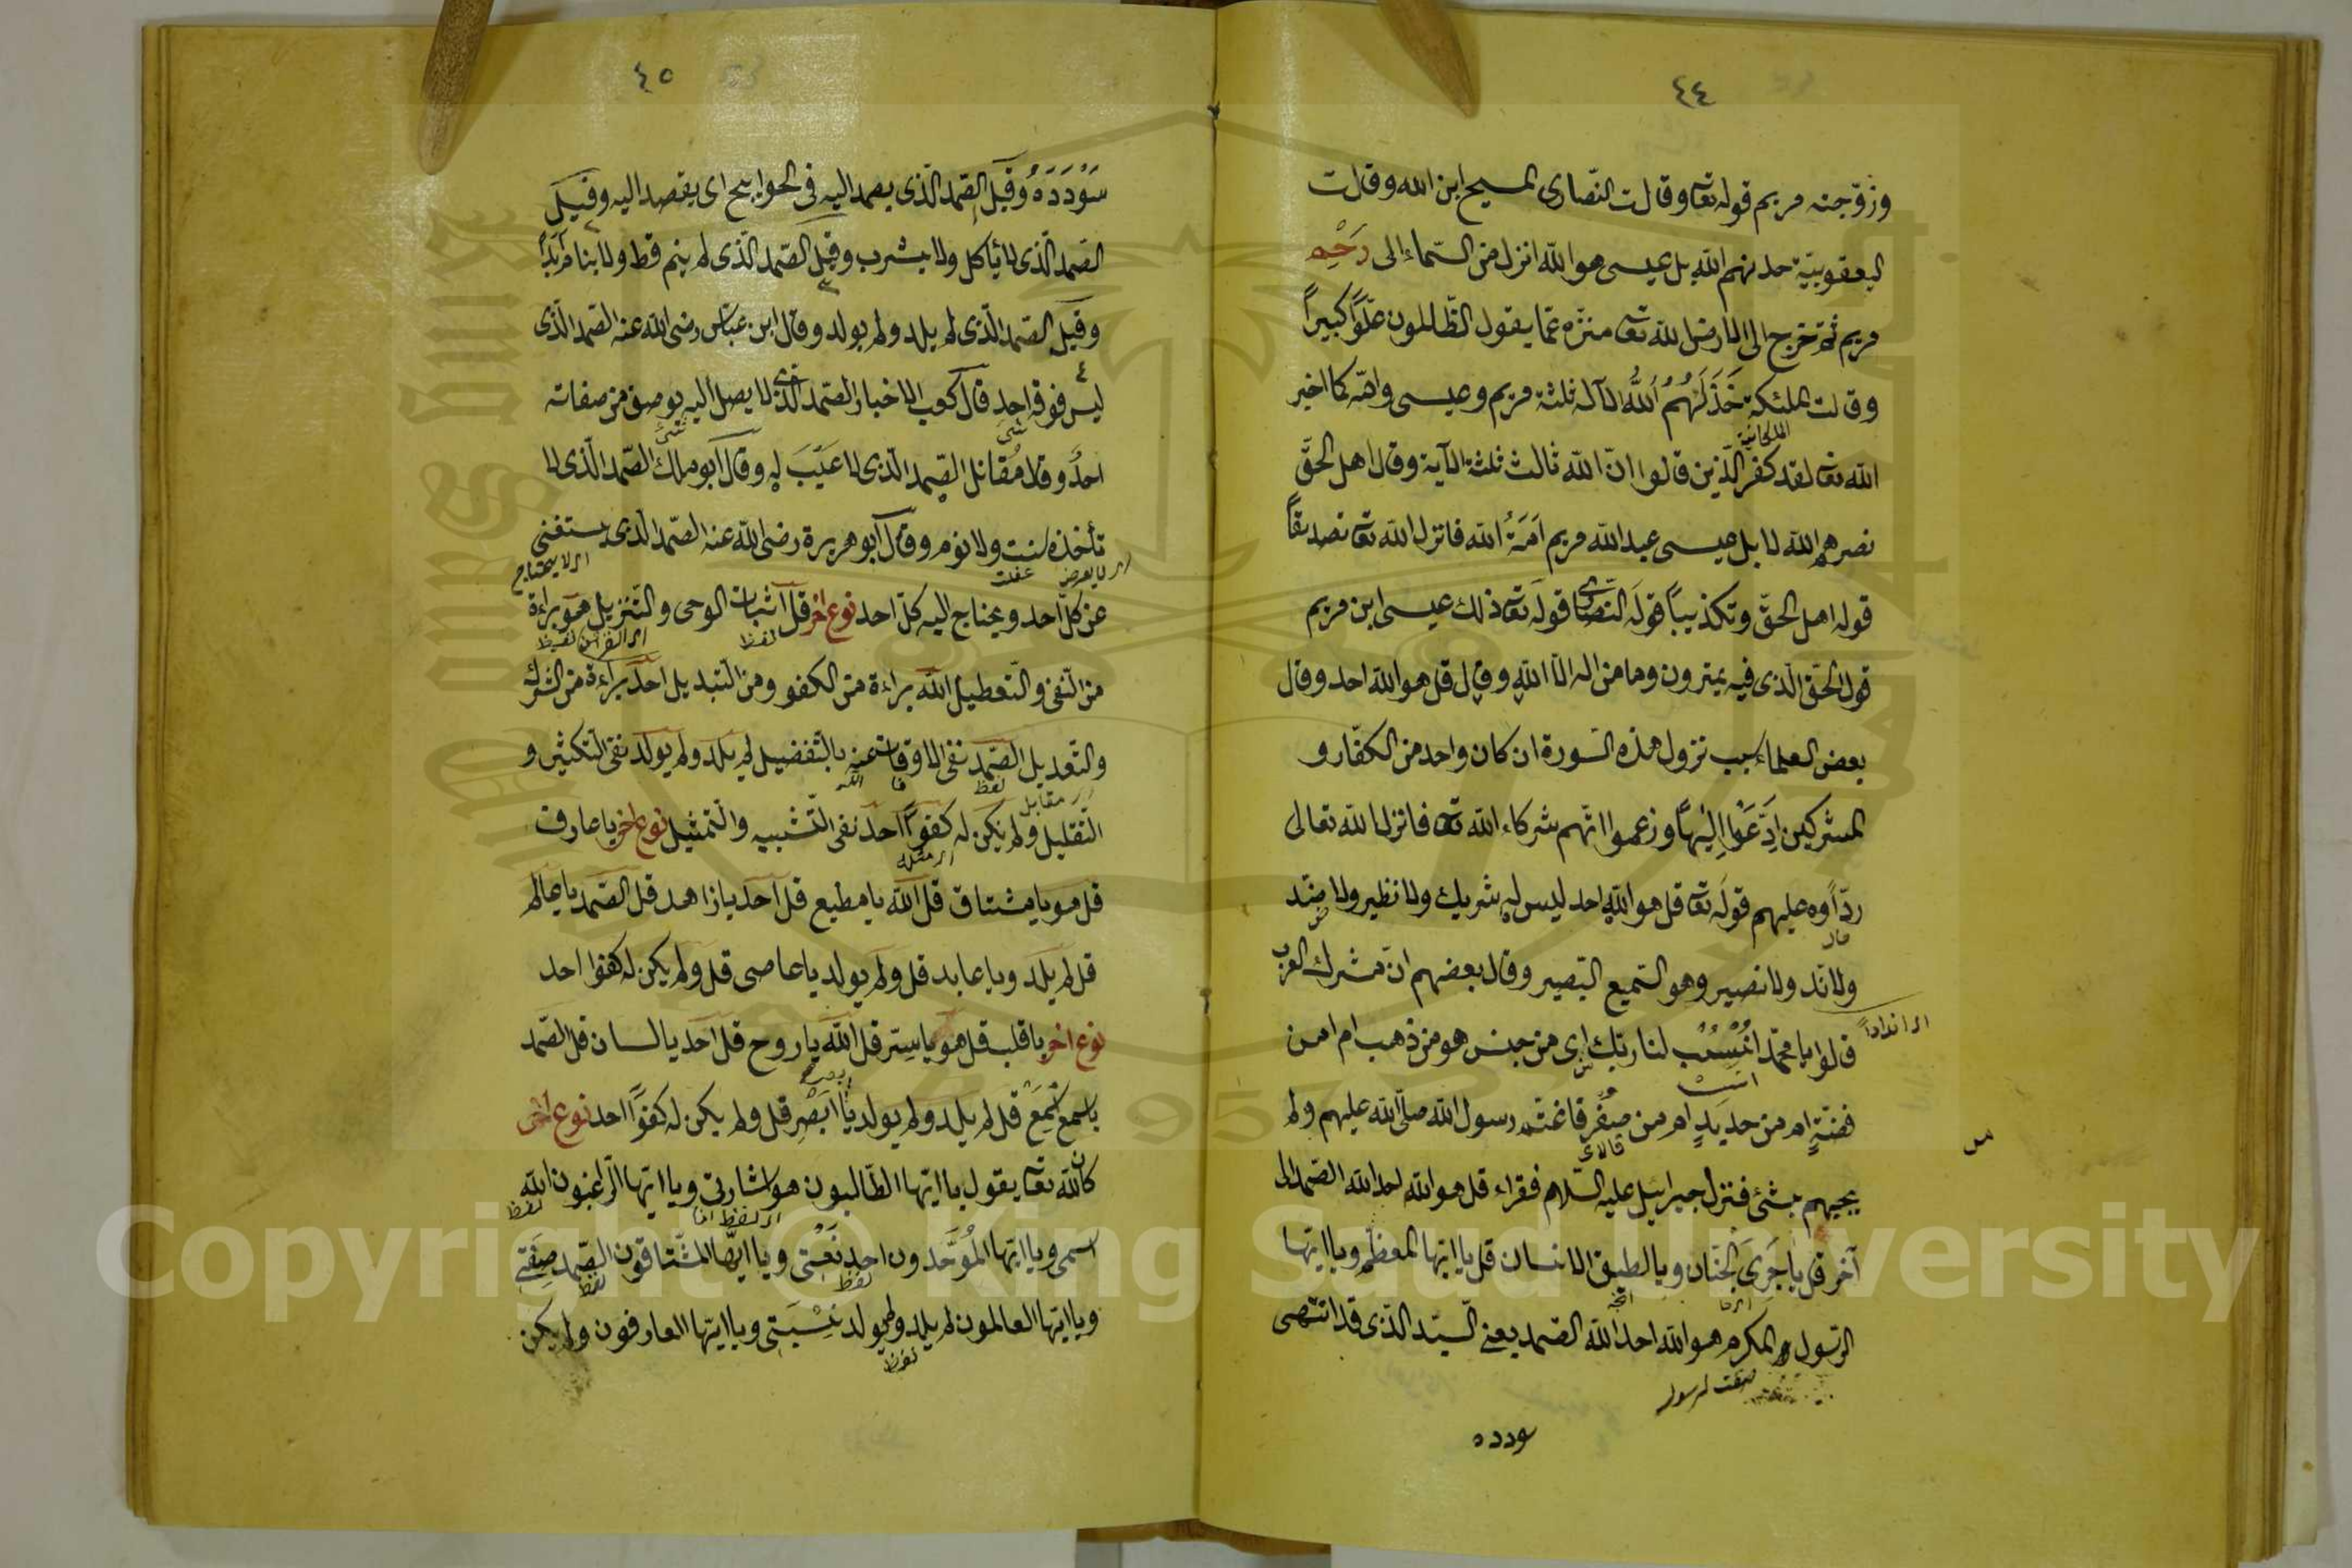 ٤٤
وزوّجته مريم قوله تعا وقالت النّصارى المسيح ابن الله وقالت
اليعقوبيّة خذلهم الله بل عيسى هو الله انزل من السّماء الى رَحْم
مريم ثمّ خرج الى الارض الله تعا منزّه عمّا يقول الظّالمون علوّاً كبيراً
وقالت الملئكية خَذَلَهُمُ اللهُ الآله ثلثة مريم وعيسى والله كما اخبر
الملكانية
الله تعا لقد كفر الّذين قالوا انّ الله ثالث ثلثة الآية وقال اهل الحقّ
نصرهم الله لا بل عيسى عبد الله مريم اَمَةُ الله فانزل الله تعا تصديقاً
قوله اهل الحقّ وتكذيباً قولَ النصارى قولَه تعا ذلك عيسى ابن مريم
قول الحقّ الّذى فيه يمترون وما من اله الّا الله وقال قل هو الله احد وقال
بعض العلماء سبب نزول هذه السّورة ان كان واحد من الكفّار و
المشركين اِدَّعَوْا اِلٰهاً وزعموا انّهم شركاء الله تعا فانزل الله تعالى
ردّاً عليهم قولَه تعا قل هو الله احد ليس له شريك ولا نظير ولا ضد
ولا ندّ ولا نصير وهو السّميع البصير وقال بعضهم انّ مشرك العرب
اى انداداً
قالوا يا محمّد اُنْسُبْ لنا ربّك اى من جنس هو من ذهب ام من
فضّةٍ ام من حديدٍ ام من صُفْرٍ فاغتمّ رسول الله صلّى الله عليهم ولم
يجيبهم بشئ فنزل جبرائيل عليه السّلام فقراء قل هو الله احد الله الصّمد الى
آخر قل يا جَرِىَ الجَنَان ويا لطيف الانسان قل يا ايّها المعظّم ويا ايّها
الرّسول المكرم هو الله احد الله الصّمد يعنى السّيّد الّذى قد انتهى
صفت لرسول
سودده
٤٥
سَوْدَدَهُ وقيل الصّمد الّذى يصمد اليه فى الحوايج اى يقصد اليه وقيل
الصّمد الّذى لا يأكل ولا يشرب وقيل الصّمد الّذى لم ينم قط ولا ينام ابداً
وقيل الصّمد الّذى لم يلد ولم يولد وقال ابن عبّاس رضى الله عنه الصّمد الّذى
ليس فوقه احد قال كعب الاخبار الصّمد الّذى لا يصل اليه بوصف من صفاته
احدٌ وقال مُقاتل الصّمد الّذى لا عَيْبَ له وقال ابو مالك الصّمد الّذى لا
تأخذه سنت ولا نوم وقال ابو هريرة رضى الله عنه الصّمد الّذى يستغنى
اى لا يعرضه غفلت اى لا يحتاج
عن كلّ احد ويحتاج اليه كلّ احد نوع اخر قل اثبات الوحى والتّنزيل هو براءة
لفظ
من النّفى والتّعطيل الله براءة من الكفو ومن التّبديل احد براءة من الشّرك
والتّعديل الصّمد نفى الاوقات عنه بالتّفضيل لم يلد ولم يولد نفى التّكثير و
لفظ
التّقليل ولم يكن له كفواً احد نفى التّشبيه والتّمثيل نوع اخر يا عارف
قل هو يا مشتاق قل الله يا مطيع قل احد يا زاهد قل الصّمد يا عالم
قل لم يلد ويا عابد قل ولم يولد يا عاصى قل ولم يكن له كفوا احد
نوع اخر يا قلب قل هو يا سرّ قل الله يا روح قل احد يا لسان قل الصّمد
يا سمع قل لم يلد ولم يولد يا ابَصَر قل ولم يكن له كفوًا احد نوع اخر
كان الله تعا يقول يا ايّها الطّالبون هو اشارتى ويا ايّها الرّاغبون الله
لفظ
اسمى ويا ايّها المُوَحّدون احد نَعْتى ويا ايّها المشتاقون الصّمد صِفَتِى
لفظ لفظ
ويا ايّها العالمون لم يلد ولم يولد نِسْبَتى ويا ايّها العارفون ولم يكن
لفظ
Copyright © King Saud University